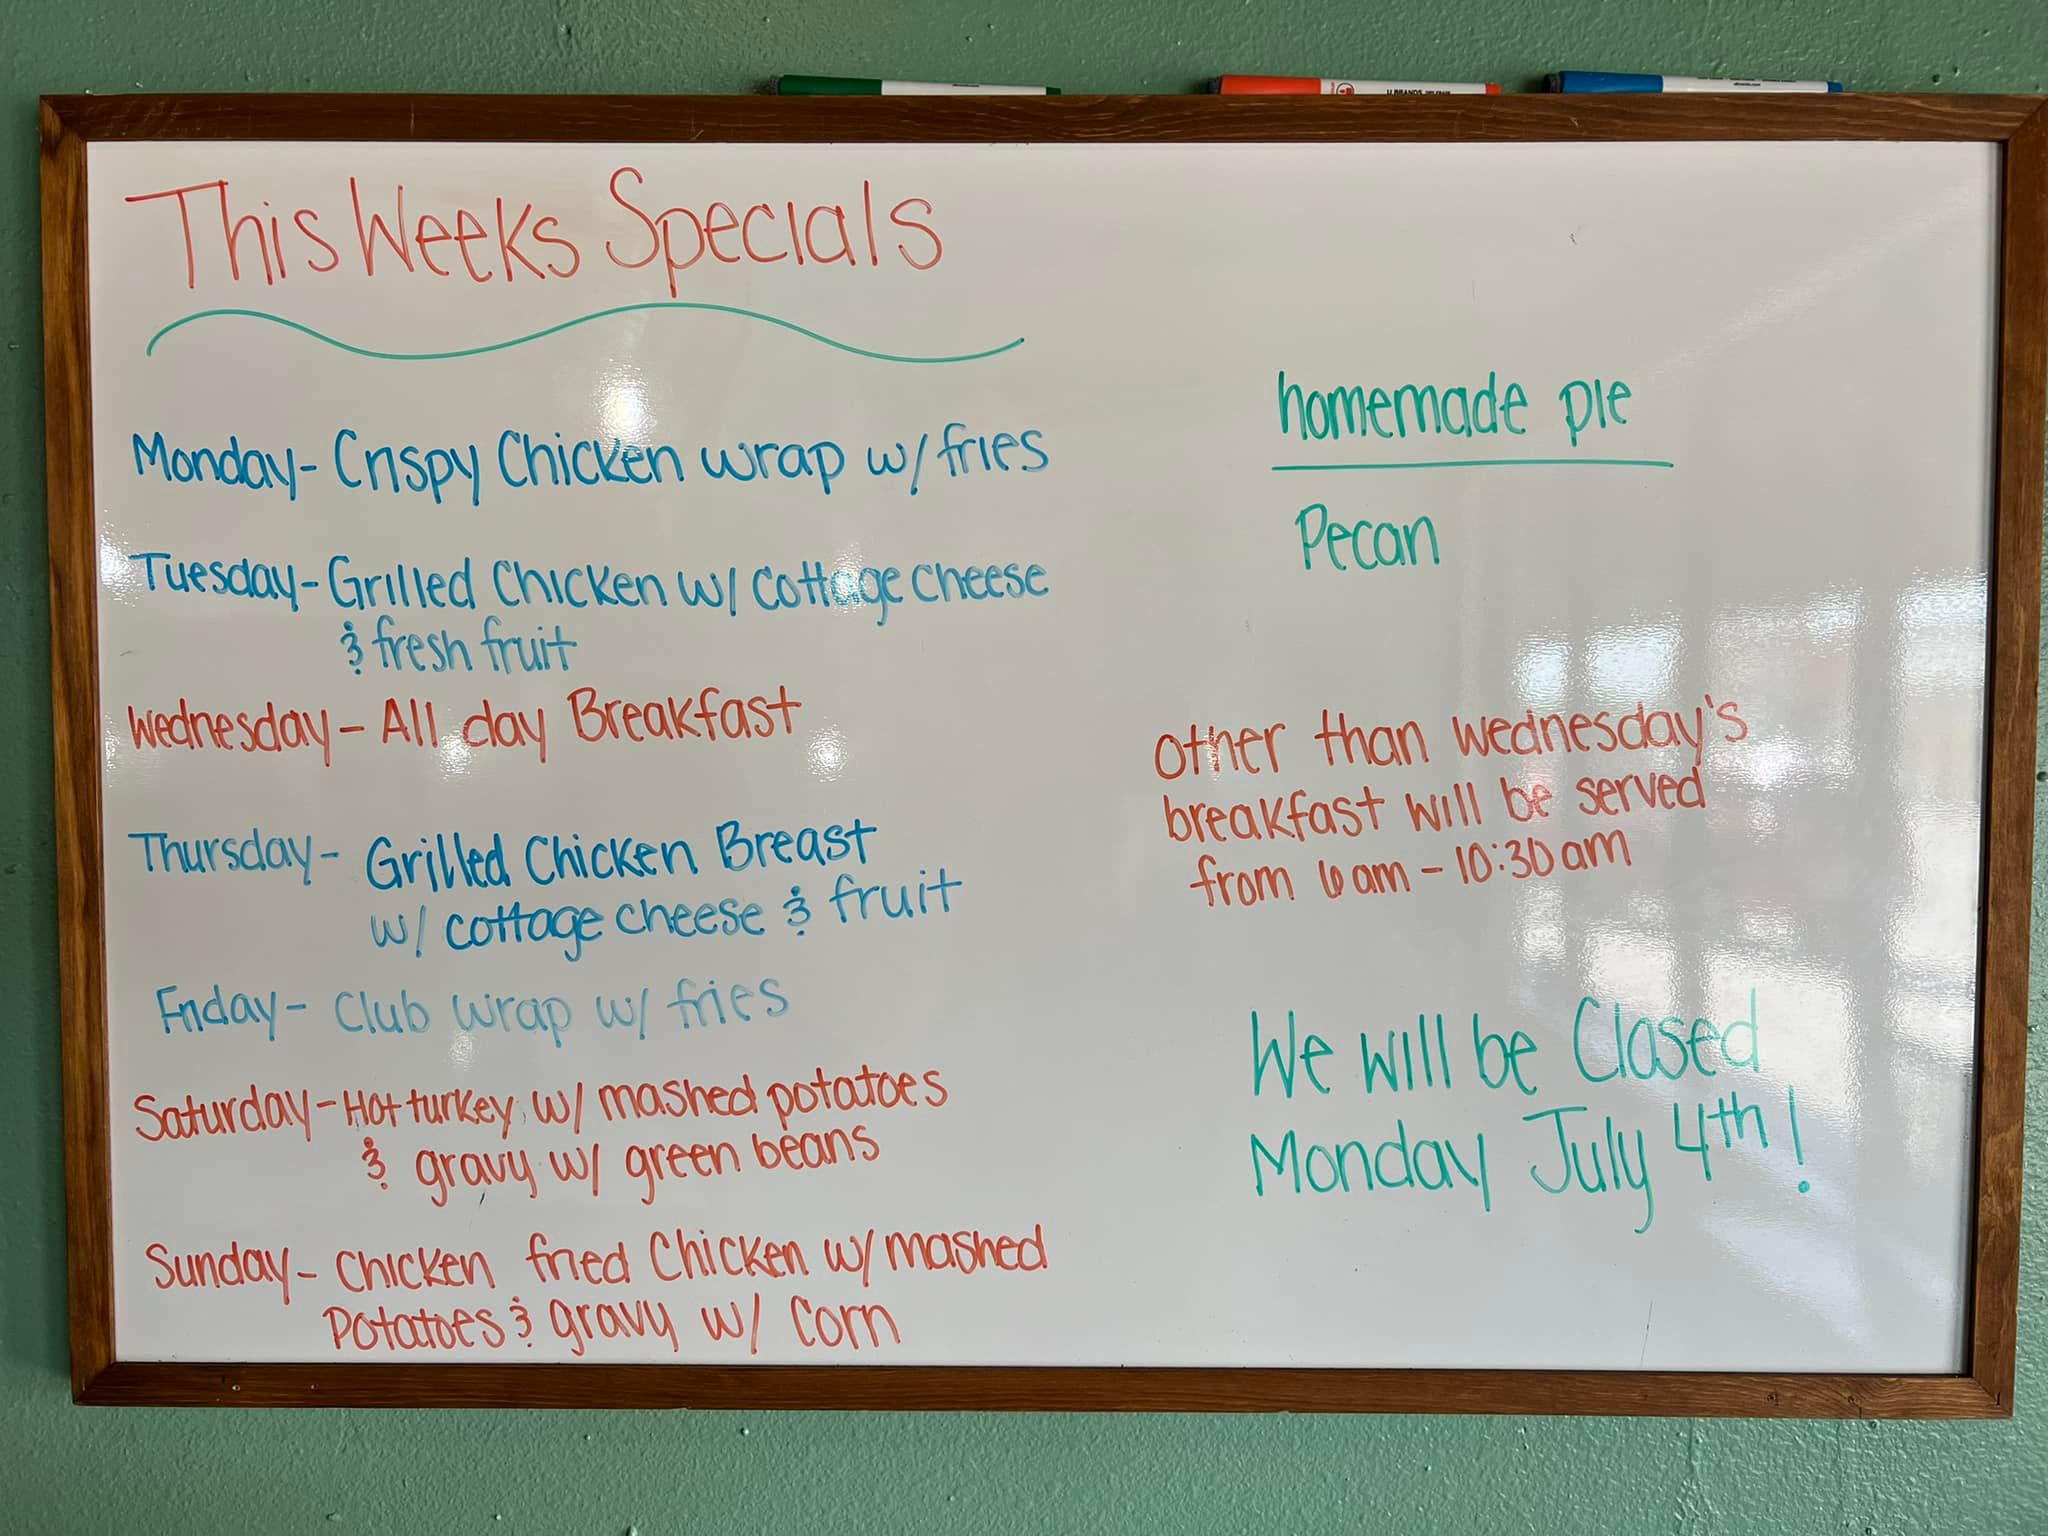 U BRANDS
This Weeks Specials
Monday- Crispy Chicken wrap w/ fries
Tuesday- Grilled Chicken w/ cottage cheese
& fresh fruit
Wednesday - All day Breakfast
Thursday- Grilled Chicken Breast
w/ cottage cheese & fruit
Friday- Club wrap w/ fries
Saturday- Hot turkey w/ mashed potatoes
& gravy w/ green beans
Sunday- chicken fried Chicken w/ mashed
Potatoes & gravy w/ corn
homemade pie
Pecan
other than wednesday's
breakfast will be served
from 6am - 10:30am
We will be Closed
Monday July 4th!